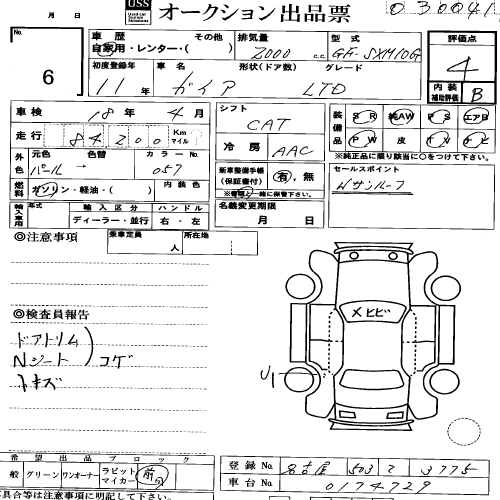 月 日 USS オークション出品票 030041
No. 6
車歴 自家用・レンター・( ) その他
排気量 2000 c.c.
型式 GF-SXM10G
評価点 4
内装補助評価 B
初度登録年 11年
車名 ガイア
形状(ドア数) グレード LTD
車検 18年 4月
走行 84200 Km マイル
シフト CAT
冷房 AAC
装備品 SR 純AW PS エアB
PW 皮 TV ナビ
※純正品に限り該当に○をつけて下さい。
外色 元色 パール → 色替 カラーNo. 057
燃料 ガソリン・軽油・( ) 内装色
新車整備手帳(保証書付) 有・無
※書類と一緒に保管下さい。
セールスポイント
Wサンルーフ
輸入車用 年式 輸入区分 ディーラー・並行 ハンドル 右・左
名義変更期限 月 日
◎注意事項
乗車定員 人 所在地
◎検査員報告
ドアトリム
Nシート コゲ
トキズ
×ヒビ
U1
希望出品ブロック
一般 グリーン ワンオーナー ラビットマイカー 前回
登録No. 名古屋 503 7 3775
車台No. 0174729
具合等は注意事項に明記して下さい。